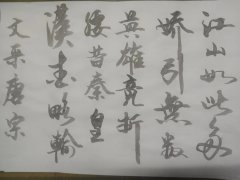 江山如此多
娇引無数
英雄竞折
腰昔秦皇
漢武略輸
文采唐宗